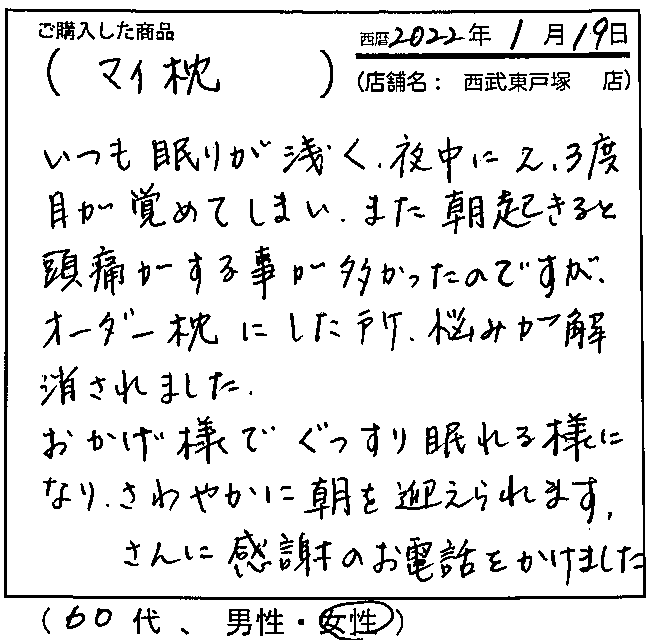 ご購入した商品
西暦2022年 1月19日
(マイ枕)
(店舗名: 西武東戸塚 店)
いつも眠りが浅く、夜中に2、3度
目が覚めてしまい、また朝起きると
頭痛がする事が多かったのですが、
オーダー枕にした所、悩みが解
消されました。
おかげ様でぐっすり眠れる様に
なり、さわやかに朝を迎えられます。
さんに感謝のお電話をかけました
(60代、男性・女性)